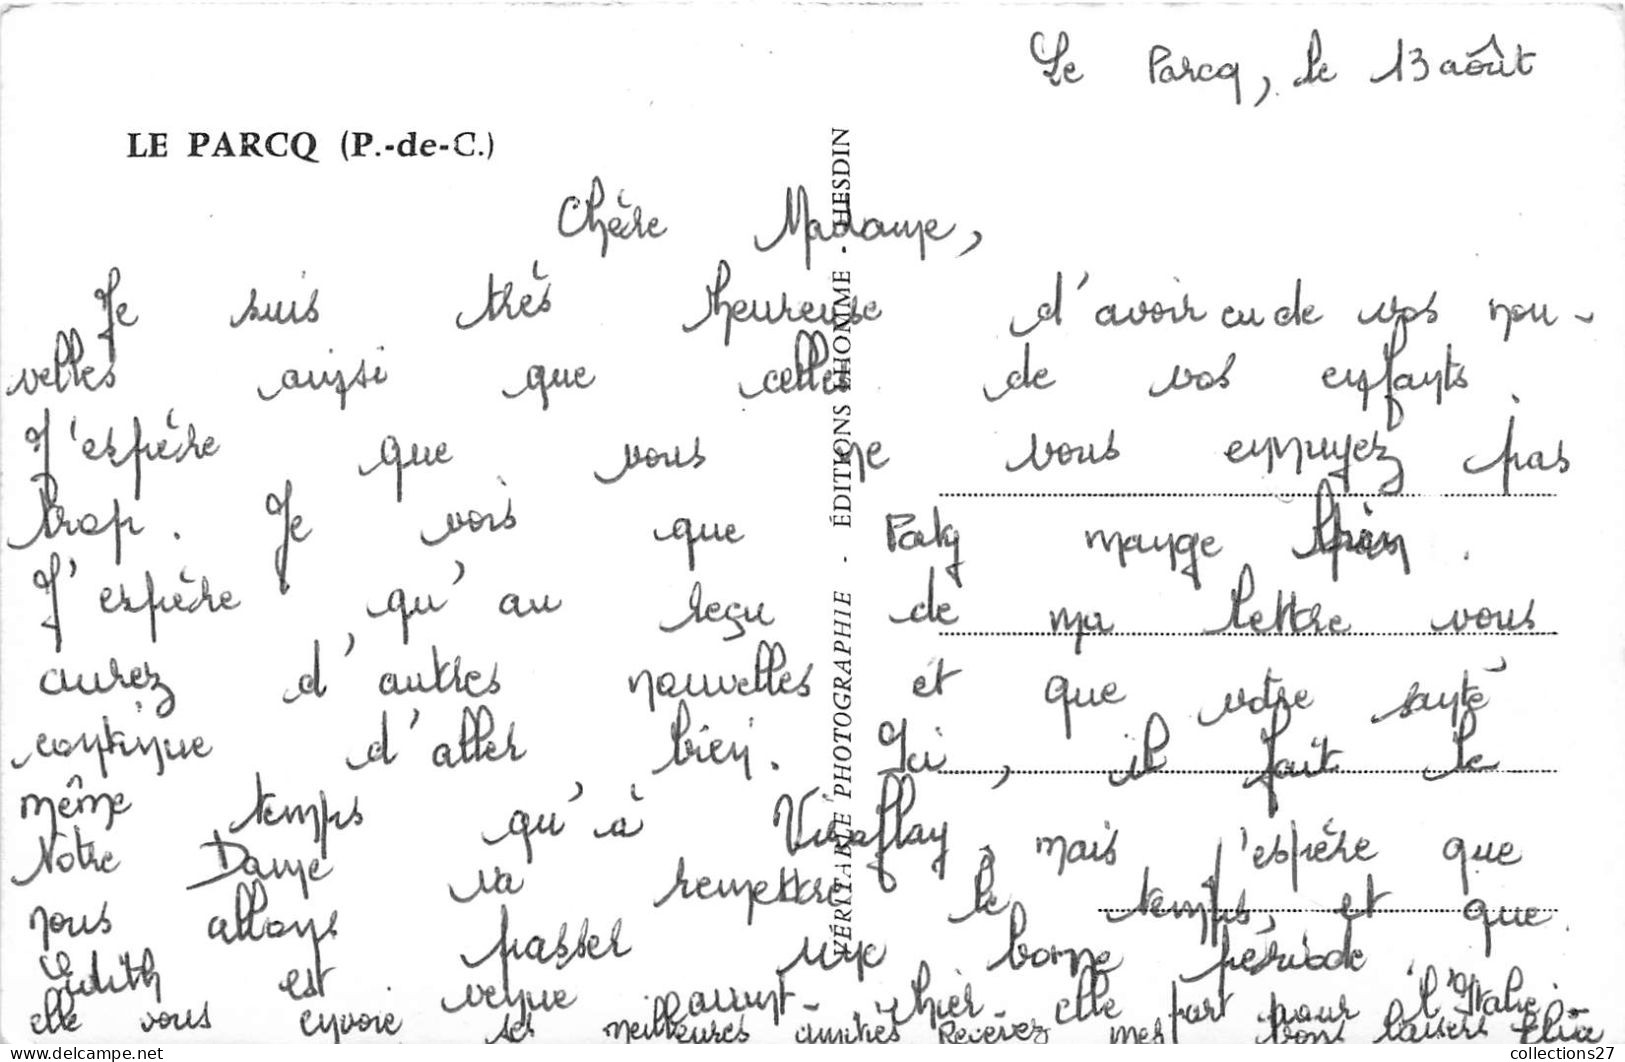 Le Parcq, le 13 août
LE PARCQ (P.-de-C.)
Chère Madame,
Je suis très heureuse d'avoir eu de vos nou-
velles ainsi que celles de vos enfants
J'espère que vous ne vous ennuyez pas
trop. Je vois que Paky mange bien.
J'espère qu'au reçu de ma lettre vous
aurez d'autres nouvelles et que votre santé
continue d'aller bien. Ici, il fait le
même temps qu'à Viroflay, mais j'espère que
Notre Dame va remettre le temps, et que
nous allons passer une bonne période
Judith est venue avant-hier elle part pour l'Italie
elle vous envoie ses meilleures amitiés Recevez mes bons baisers
VÉRITABLE PHOTOGRAPHIE - ÉDITIONS LHOMME - HESDIN
collections27